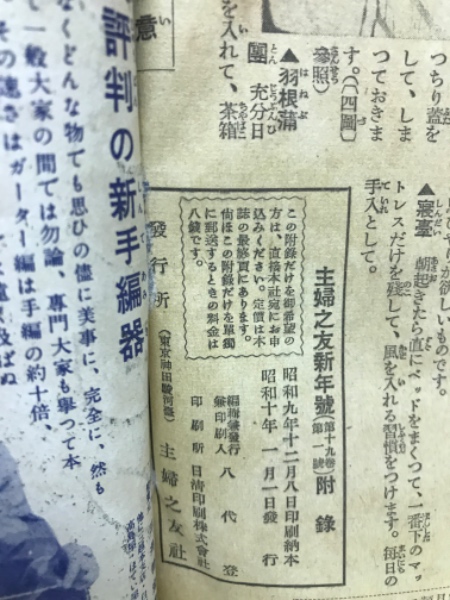 しが欲しいものです。
▲寢臺 朝起きたら直にベッドをまくつて、一番下のマッ
トレスだけを殘して、風を入れる習慣をつけます。毎日の
手入として。
つちり蓋を
して、しま
つておきま
す。(四圖
參照)
▲羽根蒲
團 充分日
を入れて、茶箱
意
主婦之友新年號(第十九卷第一號)附錄
昭和九年十二月八日印刷納本
昭和十年一月一日發行
編輯兼發行兼印刷人 八代登
印刷所 日清印刷株式會社
發行所 (東京神田駿河臺) 主婦之友社
この附錄だけを御希望の
方は、直接本社宛にお申
込みください。定價は本
誌の最終頁にあります。
尙ほこの附錄だけを單獨
に郵送するときの料金は
八錢です。
評判の新手編器
なくどんな物でも思ひの儘に美事に、完全に、然も
一般大家の間では勿論 專門大家も擧つて本
その速さはガーター編は手編の約十倍、